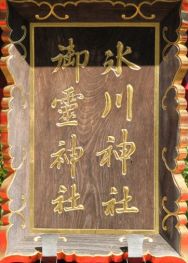 氷川神社
御靈神社